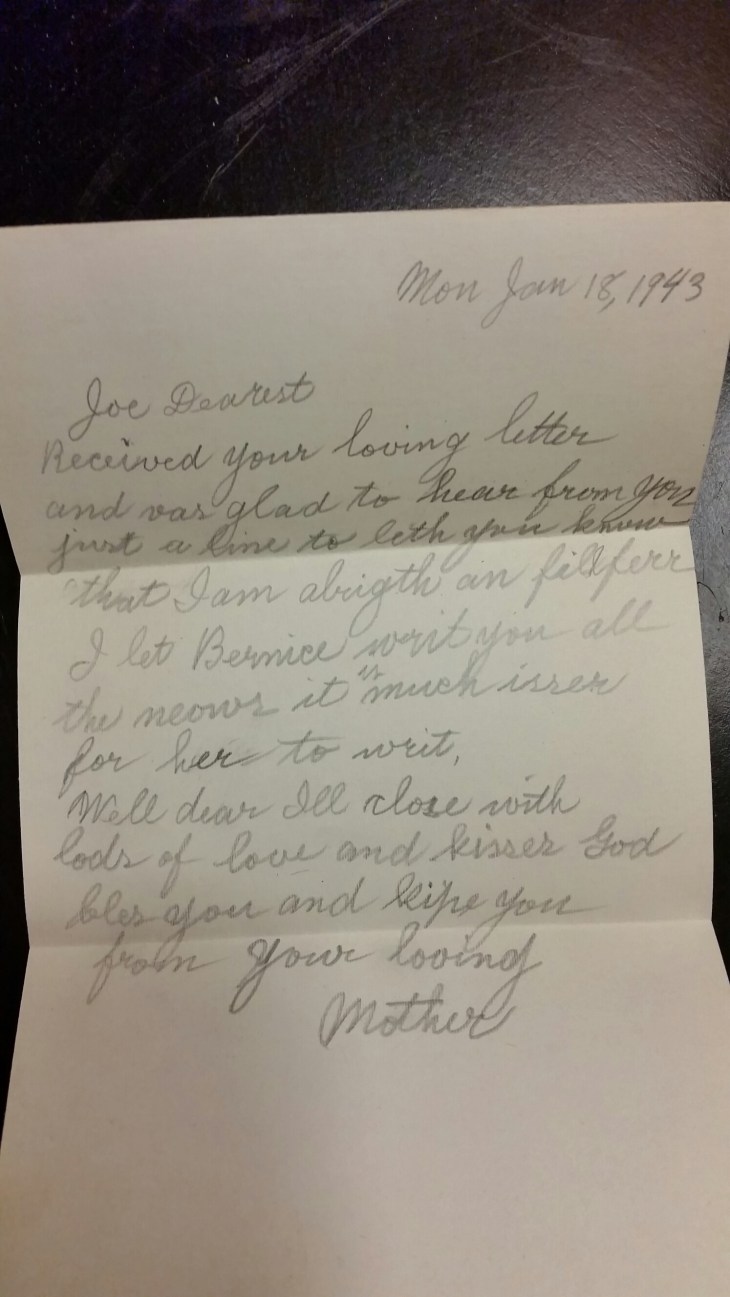 Mon Jan 18, 1943
Joe Dearest
Received your loving letter
and vas glad to hear from you
just a line to leth you know
that I am abrigth an fillferr
I let Bernice writ you all
the neows it is much isser
for her to writ,
Well dear Ill close with
lods of love and kisser God
bles you and kipe you
from your loving
Mother